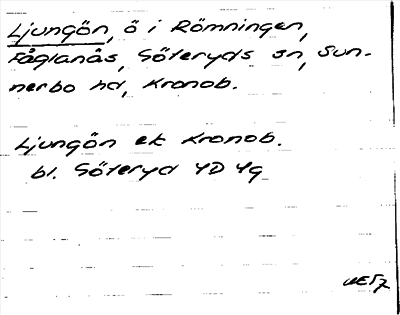 Ljungön, ö i Römningen,
Fåglanäs, Göteryds sn, Sun-
nerbo hd, Kronob.
Ljungön ek Kronob.
bl. Göteryd 4D 4g